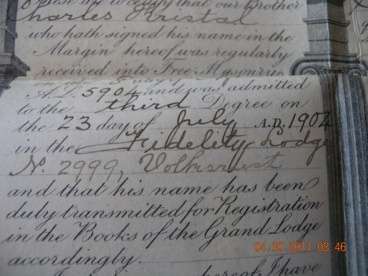 to certify that our Brother
Charles Kristal
who hath signed his name in the
Margin hereof was regularly
received into Free Masonry
A.L. 5904 and was admitted
to the third Degree on
the 23 day of July A.D. 1904
in the Fidelity Lodge
N. 2999, Volksrust
and that his name has been
duly transmitted for Registration
in the Books of the Grand Lodge
accordingly.
hereof I have
2011 08:46